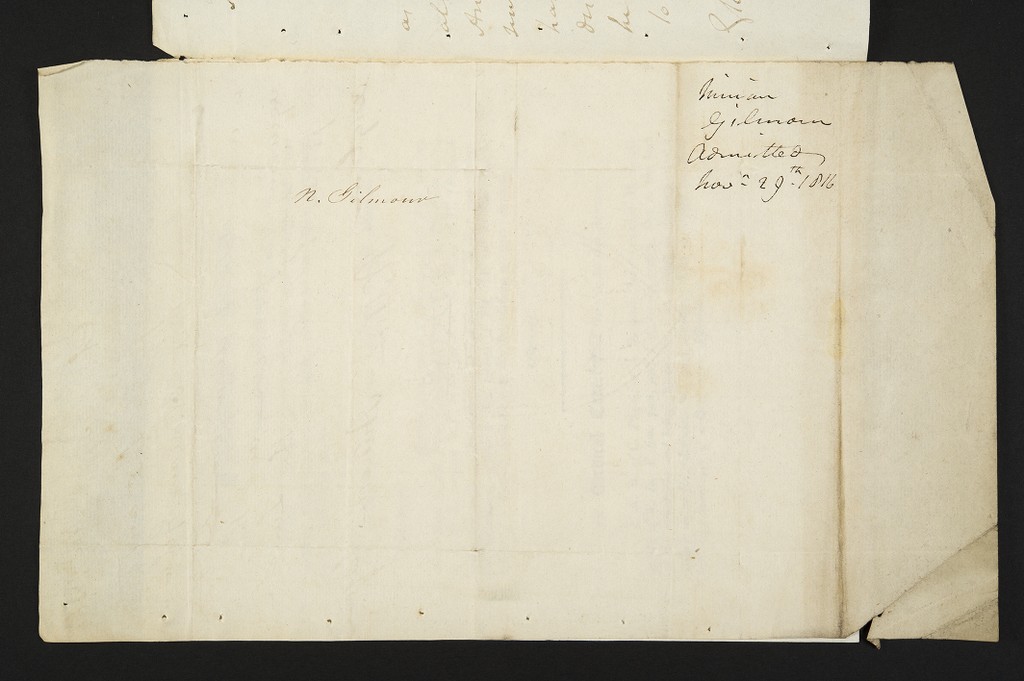 Ninian
Gilmour
Admitted
Novr. 29th. 1816
N. Gilmour